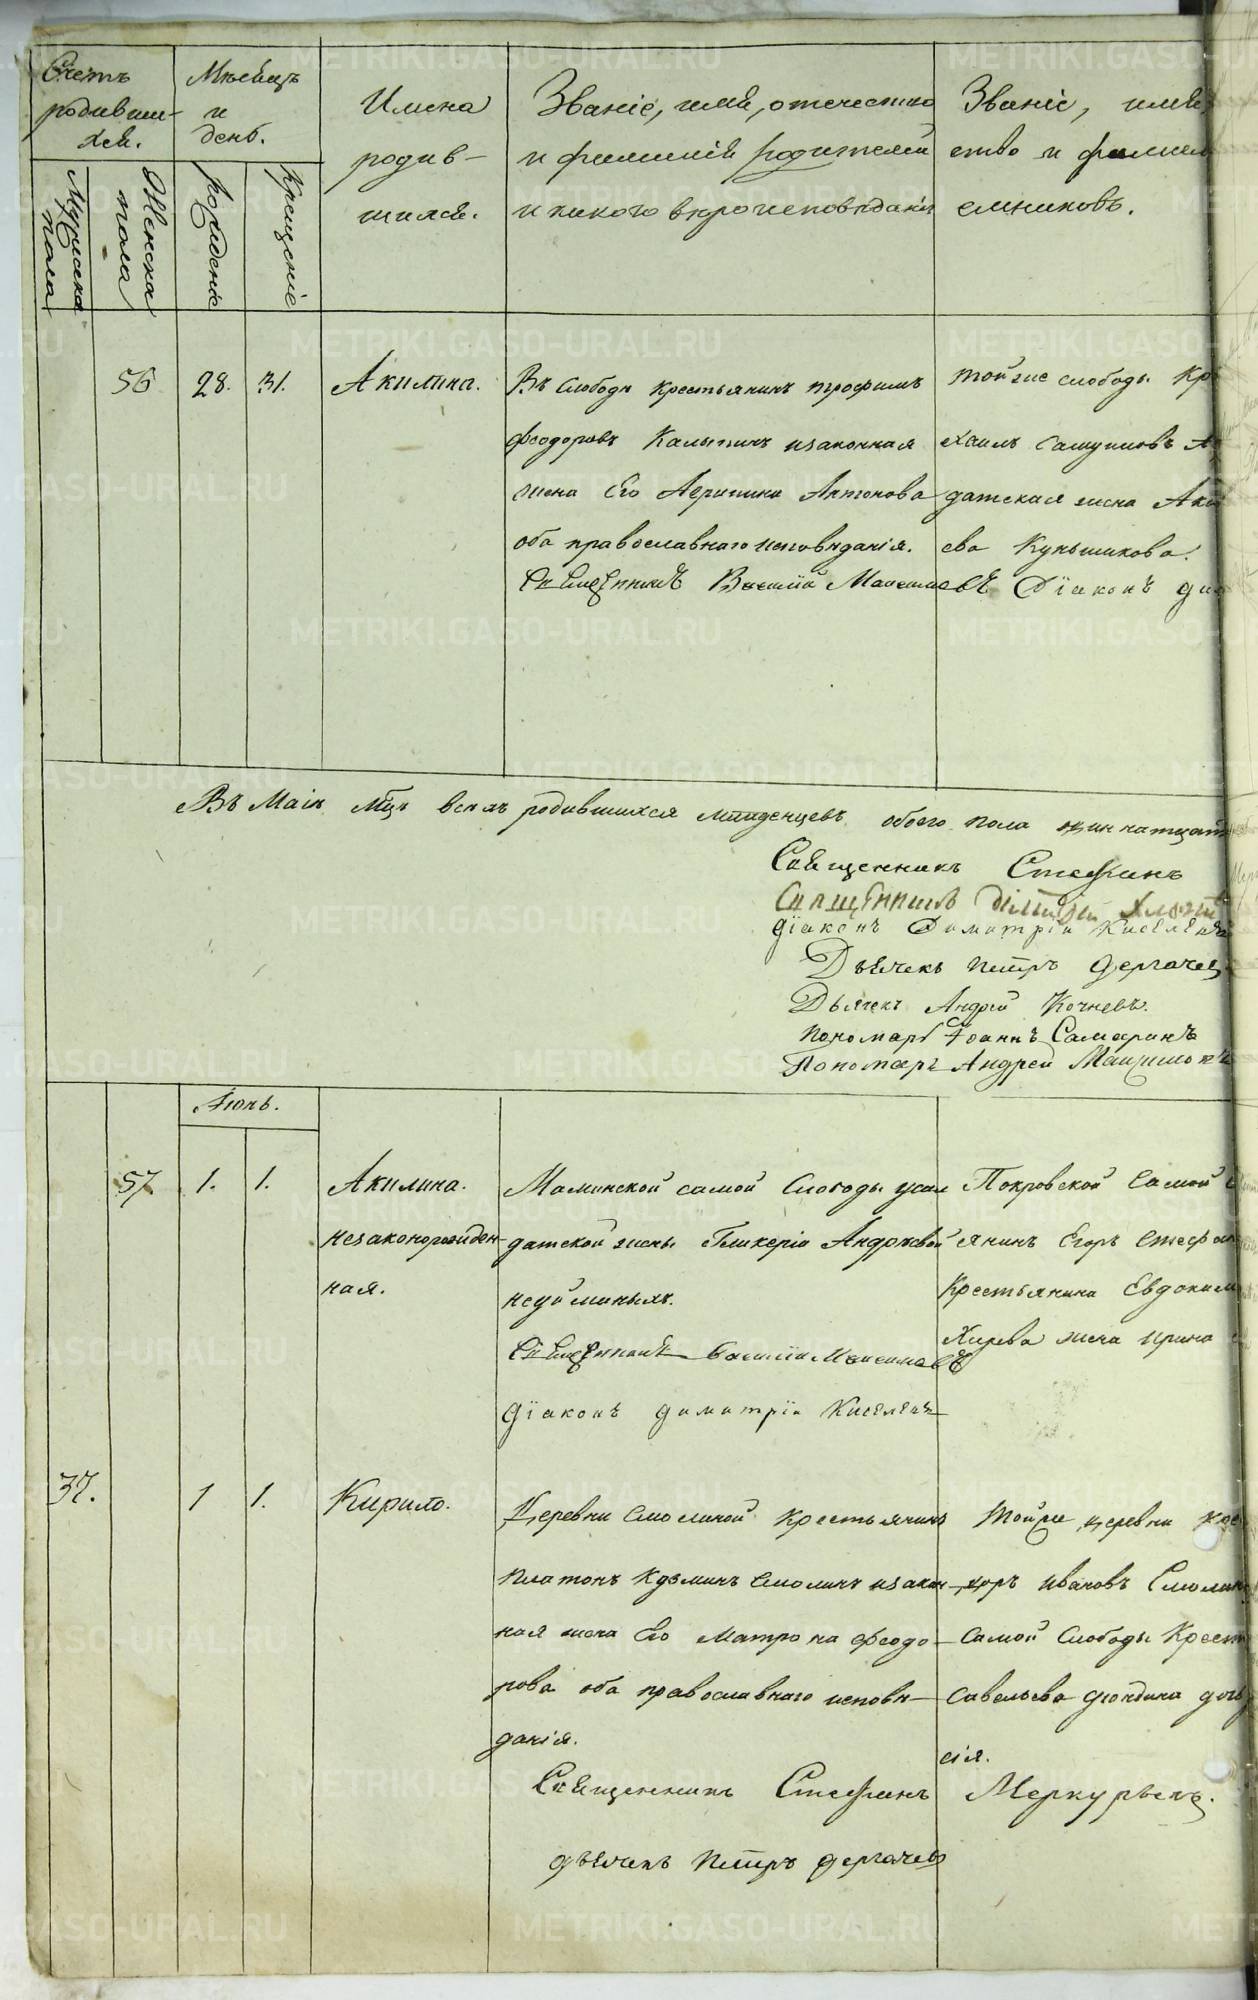 Счетъ
родивши-
хся.
Мѣсяцъ
и
день.
Имена
родив-
шихся.
Званіе, имя, отечество
и фамилія родителей
и какого вѣроисповѣданія
Званіе, имя,
ество и фамил
емниковъ.
Мужеска
пола
Женска
пола
рожденіе
Крещеніе
56
28.
31.
Акилина.
Въ Слободѣ Крестьянинъ Трофимъ
Феодоровъ Калыгинъ изаконная
жена Его Агрипина Антонова
оба православнаго исповѣданія.
Священникъ Василій Максимовъ Діаконъ Ди
Тойже слободы Кр
хаилъ
датская жена Аки
ева Куньшикова.
Въ Маіи мцѣ всѣхъ родившихся младенцевъ обоего пола одиннатцат
Священникъ Стефанъ
Священникъ Димитрій
Діаконъ Димитрій Киселевъ
Дьячекъ Петръ Дергачев
Дьячекъ Андрей Кочневъ.
Пономарь Іоаннъ Самаринъ
Пономарь Андрей
Іюнь.
57.
1.
1.
Акилина.
незаконорожден-
ная.
Маминской самой Слободы усол
датской жены Гликеріи Андрѣевой
недоминыхъ.
Священникъ Василій Максимовъ
Діаконъ Димитрій Киселевъ
Покровской Самой С
янинъ Егоръ Стефан
Крестьянина Евдоким
Хирева жена Ирина
37.
1
1.
Кирило.
Деревни Смолиной Крестьянинъ
Платонъ Кузминъ Смолинъ изакон-
ная жена Его Матрона Феодо-
рова оба православнаго исповѣ-
данія.
Священникъ Стефанъ Меркурьевъ.
Дьячекъ Петръ Дергачев
Тойже деревни Кре
доръ Ивановъ Смолин
Самой Слободы Крест
Савельева Дюндина дочь
сія.
METRIKI.GASO-URAL.RU